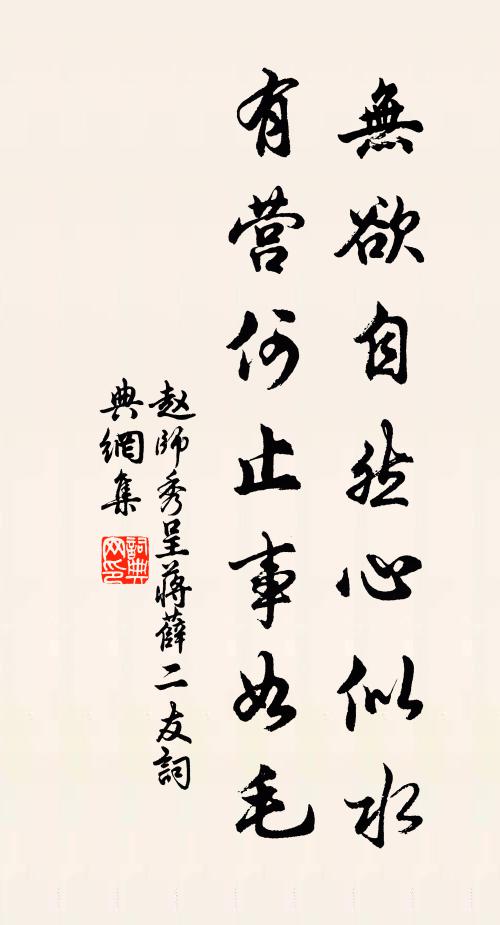 無欲自然心似水
有营何止事如毛
赵師秀呈蒋薛二友詞
典網集
詞典
网印